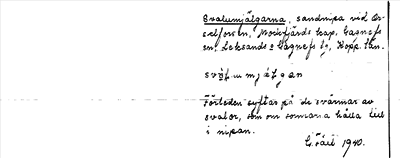 Svalumjälgarna, sandnipa vid Ös-
selforsen, Nockfjärds kap, Gagnefs
sn. Leksands o Gagnefs tg, Kopp. län.
svö umjätgan
Förleden syftar på de svärmar av
svalor, som om somrarna hålla till
i nipan.
G. Fält 1940.